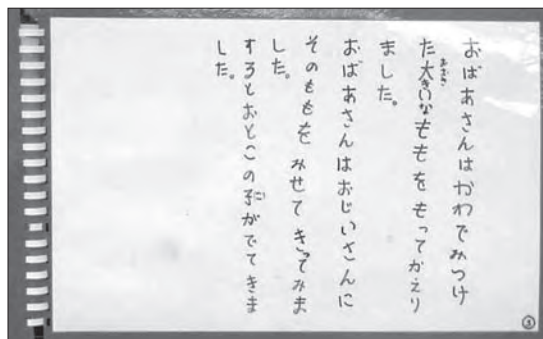 おばあさんはかわでみつけ
た大きいなももをもってかえり
ました。
おばあさんはおじいさんに
そのももをみせてきってみま
した。
するとおとこの子がでてきま
した。